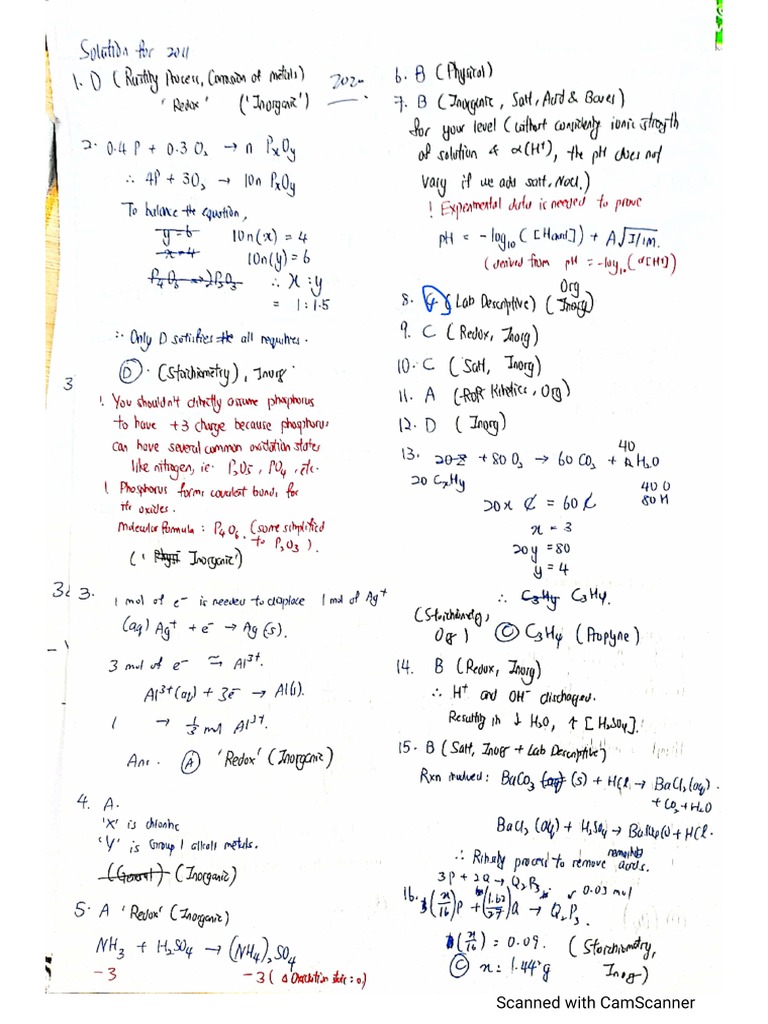 Solution for 2011
1. D (Rusting Process, Corrosion of metals) 2020
'Redox' ('Inorganic')
2. 0.4P + 0.3O₂ → n PxOy
∴ 4P + 3O₂ → 10n PxOy
To balance the equation,
y=6 10n(x) = 4
x=4 10n(y) = 6
∴ x : y
= 1 : 1.5
∴ Only D satisfies the all requires.
D. (Stoichiometry), Inorg.
3
! You shouldn't directly assume phosphorus
to have +3 charge because phosphorus
can have several common oxidation states
like nitrogen, ie. P₂O₅, PO₄, etc.
! Phosphorus forms covalent bonds for
its oxides.
Molecular formula : P₄O₆. (some simplified
to P₂O₃).
(' Phys Inorganic')
3. 1 mol of e⁻ is needed to displace 1 mol of Ag⁺
(aq) Ag⁺ + e⁻ → Ag(s).
3 mol of e⁻ ≃ Al³⁺.
Al³⁺(aq) + 3e⁻ → Al(s).
1 → 1/3 mol Al³⁺.
Ans. A 'Redox' (Inorganic)
4. A.
'X' is chlorine
'Y' is Group 1 alkali metals.
(Inorganic)
5. A 'Redox' (Inorganic)
NH₃ + H₂SO₄ → (NH₄)₂SO₄
-3 -3 (Δ Oxidation state : 0)
6. B (Physical)
7. B (Inorganic, Salt, Acid & Bases)
for your level (without considering ionic strength
of solution & α(H⁺), the pH does not
vary if we add salt, NaCl.)
! Experimental data is needed to prove
pH = -log₁₀ ([H⁺]) + A√I/1M.
(derived from pH = -log₁₀ (α[H⁺])
8. (Lab Descriptive) (Inorg) Org
9. C (Redox, Inorg)
10. C (Salt, Inorg)
11. A (RoR Kinetics, Org)
12. D (Inorg)
13. + 80 O₂ → 60 CO₂ + 40 H₂O
20 CxHy 40 O
80 H
20x C = 60 C
x = 3
20y = 80
y = 4
∴ C₃Hy C₃H₄.
(Stoichiometry,
Org) C C₃H₄ (Propyne)
14. B (Redox, Inorg)
∴ H⁺ and OH⁻ discharged.
Resulting in ↓ H₂O, ↑ [H₂SO₄].
15. B (Salt, Inorg + Lab Descriptive)
Rxn involved : BaCO₃ (aq) (s) + HCl → BaCl₂ (aq).
+ CO₂ + H₂O
BaCl₂ (aq) + H₂SO₄ → BaSO₄(s) + HCl.
∴ process to remove remaining acids.
3P + 2Q → Q₂P₃
16. (x/16)P + (1.62/27)Q → Q₂P₃. 0.03 mol
(x/16) = 0.09. (Stoichiometry,
C x = 1.44g Inorg)
Scanned with CamScanner